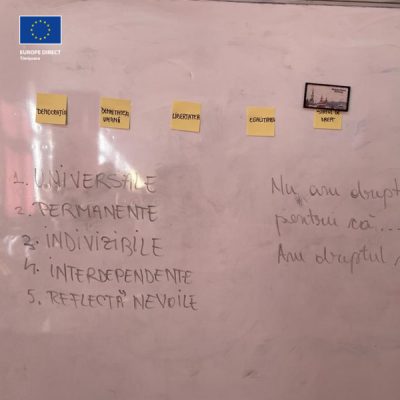 EUROPE DIRECT
Timișoara
DEMOCRAȚIA
DEMNITATEA
UMANĂ
LIBERTATEA
EGALITATEA
DREPT
1. UNIVERSALE
2. PERMANENTE
3. INDIVIZIBILE
4. INTERDEPENDENTE
5. REFLECTĂ NEVOILE
Nu am drept
pentru că...
Am dreptul